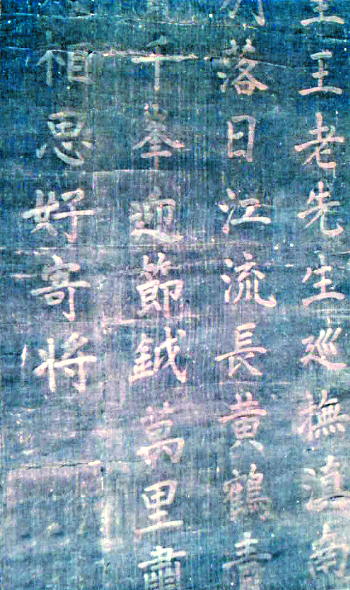 王老先生巡撫滇南
落日江流長黃鶴青
千峯迎節鉞萬里肅
相思好寄將